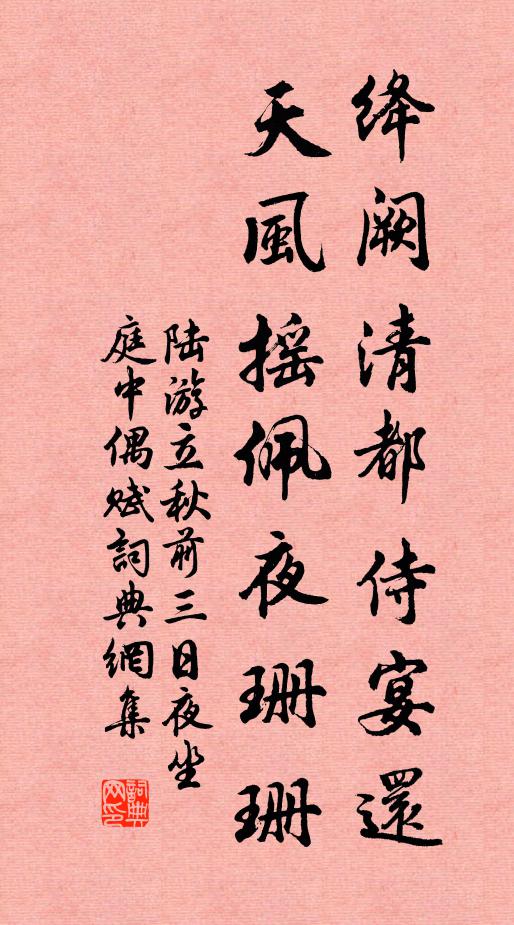 绛阙清都侍宴還
天風摇佩夜珊珊
陆游立秋前三日夜坐
庭中偶赋詞典網集
詞典
网印